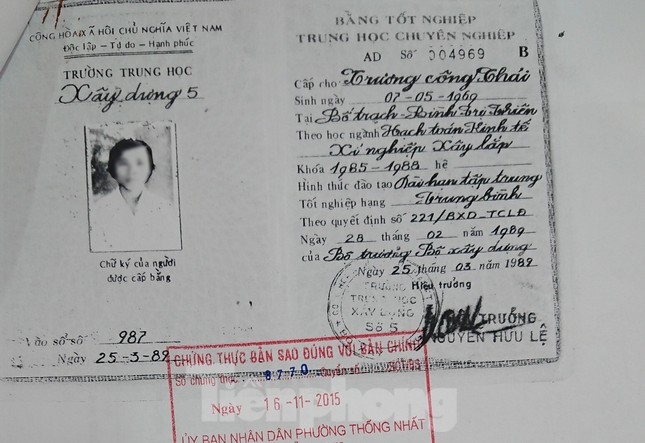 CỘNG HÒA XÃ HỘI CHỦ NGHĨA VIỆT NAM
Độc lập - Tự do - Hạnh phúc
TRƯỜNG TRUNG HỌC
Xây dựng 5
Chữ ký của người
được cấp bằng
Vào sổ số 987
Ngày 25-3-89
BẰNG TỐT NGHIỆP
TRUNG HỌC CHUYÊN NGHIỆP
AD Số 004969 B
Cấp cho Trương công Thái
Sinh ngày 07-05-1969
Tại Bố trạch - Bình Trị Thiên
Theo học ngành Hạch toán Kinh tế
Xí nghiệp Xây lắp
Khóa 1985-1988 hệ
Hình thức đào tạo Dài hạn tập trung
Tốt nghiệp hạng Trung bình
Theo quyết định số 221/BXD_TCLĐ
Ngày 28 tháng 02 năm 1989
của Bộ trưởng Bộ xây dựng
Ngày 25 tháng 03 năm 1989
Hiệu trưởng
TRƯỜNG
TRUNG HỌC
XÂY DỰNG
Số 5
TRƯỞNG
NGUYỄN HỮU LỆ
CHỨNG THỰC BẢN SAO ĐÚNG VỚI BẢN CHÍNH
Số chứng thực 8770 Quyển số
Ngày 16-11-2015
tienphong
ỦY BAN NHÂN DÂN PHƯỜNG THỐNG NHẤT